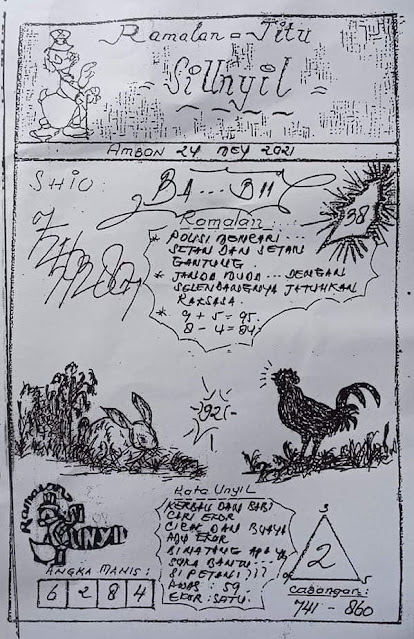 Ramalan = Jitu
SiUnyil
AMBON 24 MEY 2021
SHIO:
BA...BII
38
Ramalan:
* POLISI MENCARI
SETAN DAN SETAN
GANTUNG
* JANDA MUDA... DENGAN
SELENDANGNYA JATUHKAN
RAKSASA.
* 9 + 5 = 95.
8 - 4 = 84.
92
Ramalan
UNYIL
ANGKA MANIS:
6 2 8 4
Kata UnyiL
KERBAU DAN BABI
CARI EKOR
CICAK DAN BUAYA
ADU EKOR
BINATANG APA YG
SUKA BANTU...
SI PETANI???
ANGS: 59
EKOR: SATU.
3
2
5
Cabangan:
741 - 860